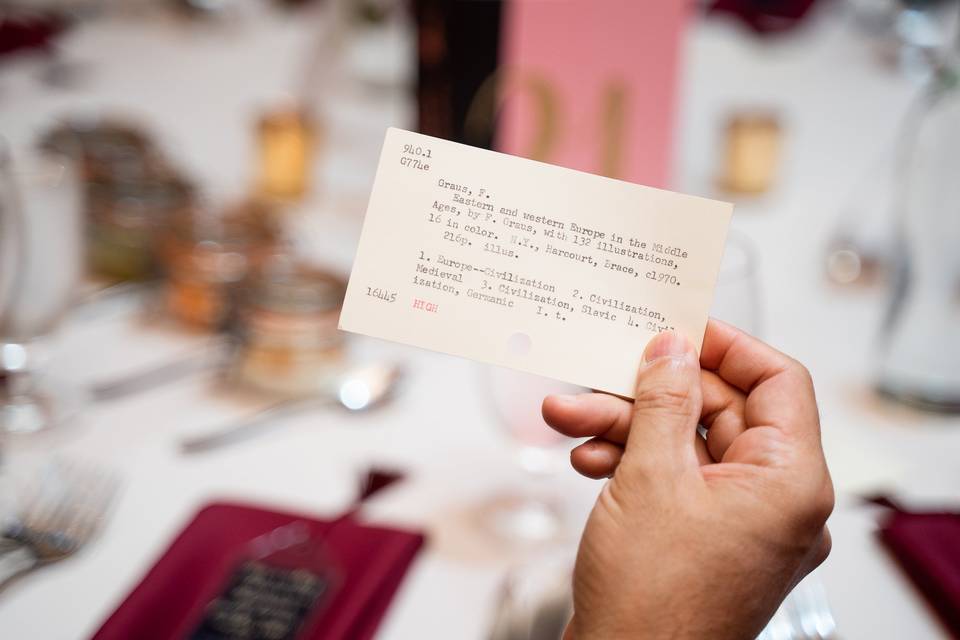 940.1
G774e
Graus, F.
Eastern and western Europe in the Middle
Ages, by F. Graus, with 132 illustrations,
16 in color. N.Y., Harcourt, Brace, c1970.
216p. illus.
1. Europe--Civilization 2. Civilization,
Medieval 3. Civilization, Slavic 4. Civil
ization, Germanic I. t.
16445 HIGH
21